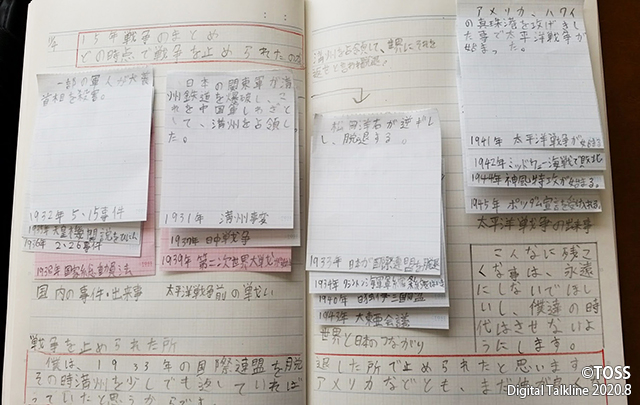 15年戦争のまとめ
どの時点で戦争を止められたのか
首相を殺害。
1932年 5・15事件
1936年 2・26事件
1938年 国家総動員法
国内の事件・出来事
日本の関東軍が満
州鉄道を爆破し、こ
れを中国軍のしわざと
して、満州を占領し
た。
1931年 満州事変
1937年 日中戦争
1939年 第二次世界大戦が
太平洋戦争前の戦い
戦争を止められた所
僕は、1933年の国際連盟を脱
その時満州を少しでも返していれば
っていたと思うから
松岡洋右が逆ギレ
し、脱退する。
1933年 日本が国際連盟を脱退
1940年 日独伊三国同盟
1943年 大東亜会議
世界と日本のつながり
アメリカ、ハワイ
の真珠湾を攻げきし
た事で太平洋戦争が
始まった。
1941年 太平洋戦争が
1942年 ミッドウェー海戦で敗北
1944年 神風特攻が始まる。
1945年 ポツダム宣言を
太平洋戦争の出来事
こんなに残こ
くな事は、永遠
にしないでほし
いし、僕達の時
代はさせないよ
うにします。
退した所で止められたと思います
アメリカなどとも、また仲が
©TOSS
Digital Talkline 2020.8